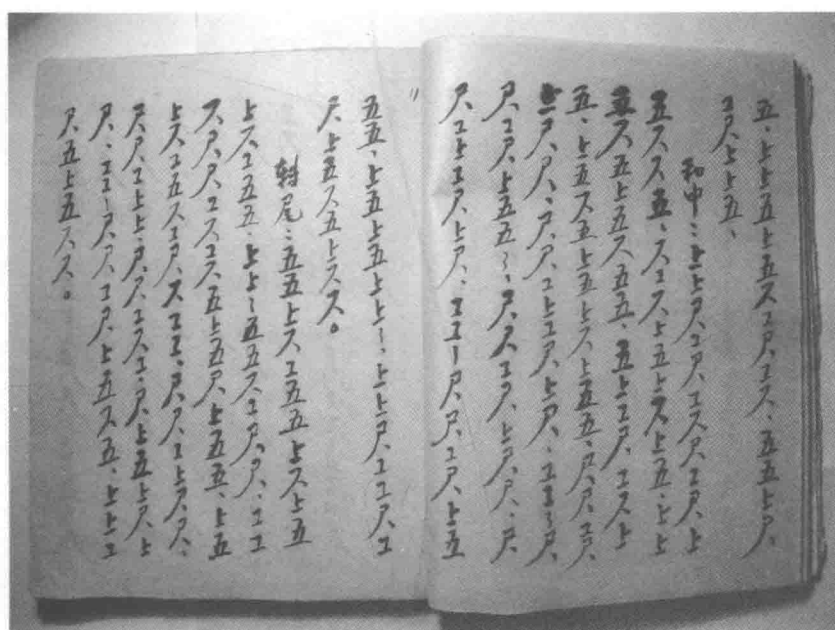 五、上上五上五ス工尺工ス、五五上尺
工尺上上五、
和中：上上尺工尺工ス尺工尺上
五スス五、ス工ス上五上ス上五、上上
五ス五上五ス五五、五上工尺工ス上
五、上五ス五上五上ス上五五、尺尺工尺
上尺尺、尺尺工上工尺上尺、工工～尺
尺工尺上五五～、尺尺工尺上尺尺、尺
尺工上工尺上尺、工工～尺尺工尺上五
五五、上五上五上上～、上上尺工工尺工
尺上五ス五上スス。
尾：五五上ス工五五上ス上五
上ス工五五、上上～五五ス工尺尺、工工
ス尺尺工スス五上五尺上五五、上五
上ス工五ス工尺ス工工、尺尺工上尺尺、
尺尺工上上、尺尺工ス工、尺上五上尺上
尺、工工～尺尺工尺上五ス五、上上工
尺五上五スス。